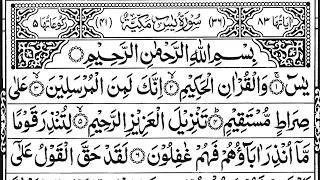 اٰیَاتُهَا ٨٣ (٣٦) سُوْرَةُ یٰسٓ مَكِّیَّةٌ (٤١) رُكُوْعَاتُهَا ٥
بِسْمِ اللّٰهِ الرَّحْمٰنِ الرَّحِیْمِ
یٰسٓ ۚ﴿١﴾ وَالْقُرْاٰنِ الْحَكِیْمِ ۙ﴿٢﴾ اِنَّكَ لَمِنَ الْمُرْسَلِیْنَ ۙ﴿٣﴾ عَلٰى
صِرَاطٍ مُّسْتَقِیْمٍ ؕ﴿٤﴾ تَنْزِیْلَ الْعَزِیْزِ الرَّحِیْمِ ۙ﴿٥﴾ لِتُنْذِرَ قَوْمًا
مَّاۤ اُنْذِرَ اٰبَآؤُهُمْ فَهُمْ غٰفِلُوْنَ ﴿٦﴾ لَقَدْ حَقَّ الْقَوْلُ عَلٰۤى